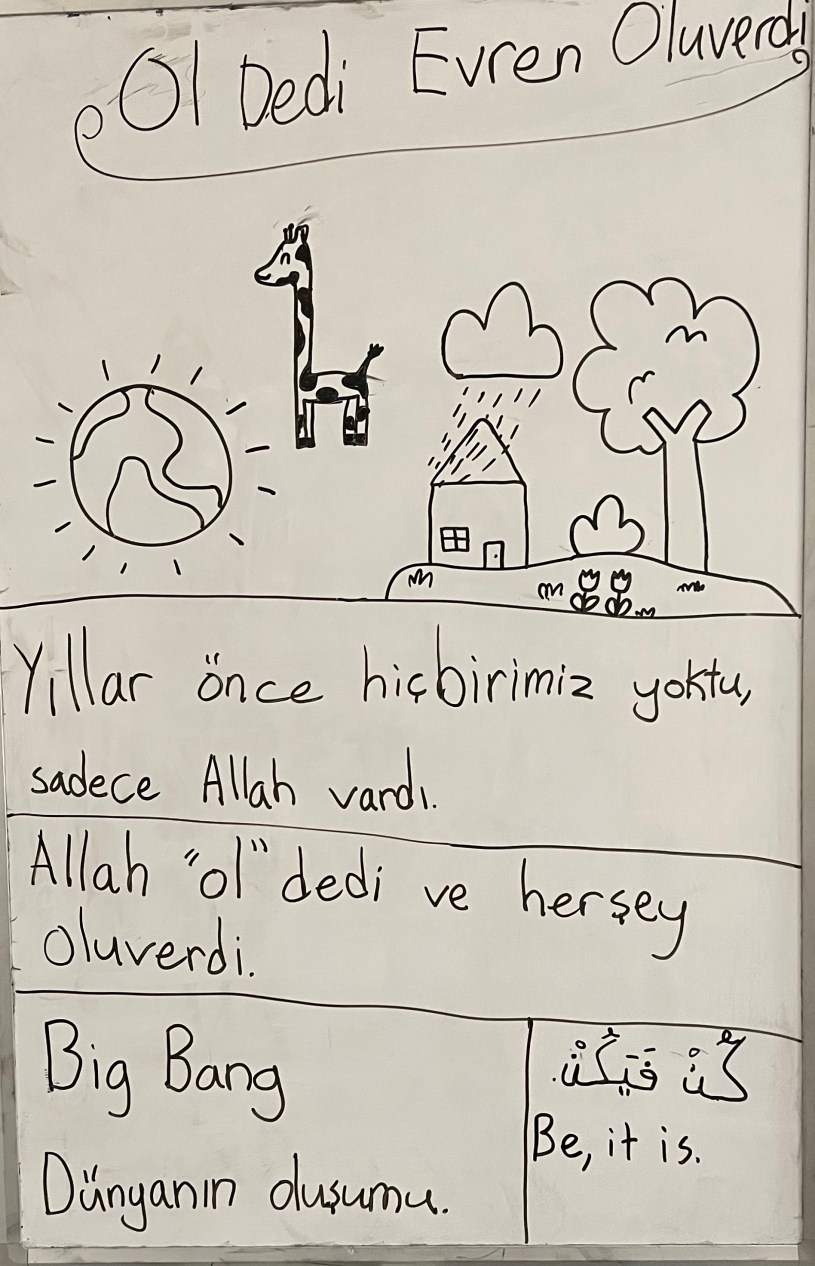 Ol Dedi Evren Oluverdi
Yıllar önce hiçbirimiz yoktu,
sadece Allah vardı.
Allah "ol" dedi ve herşey
oluverdi.
Big Bang
Dünyanın oluşumu.
كُنْ فَيَكُنْ.
Be, it is.